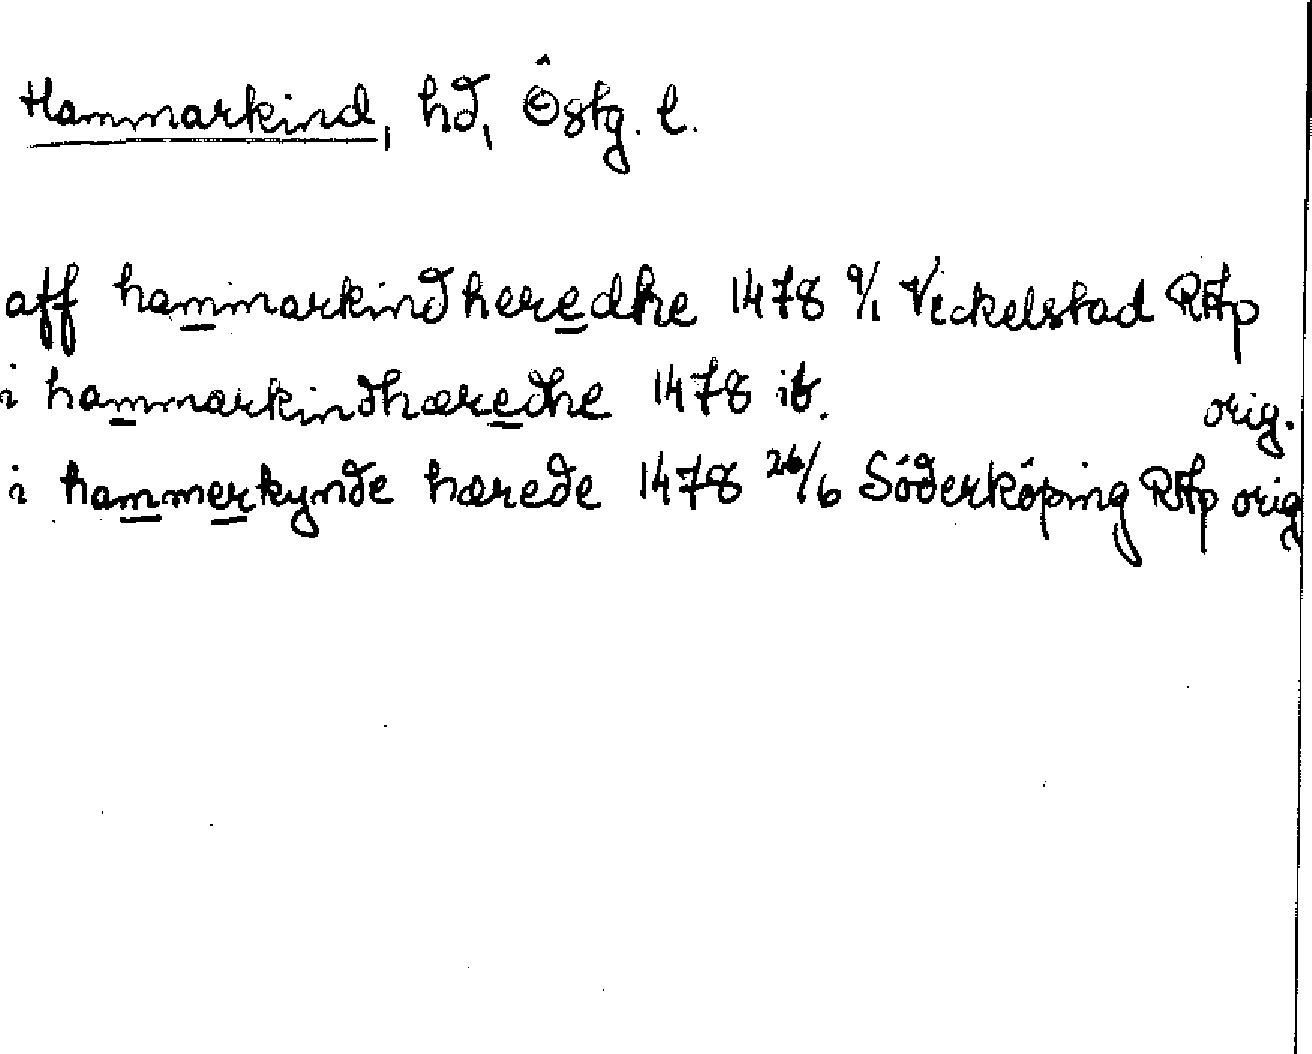 Hammarkind, hd, Östg. l.
aff hammarkindheredhe 1478 9/1 Vickelstad RAp
i hammarkindhæredhe 1478 ib. orig.
i hammerkynde hærede 1478 26/6 Söderköping RAp orig